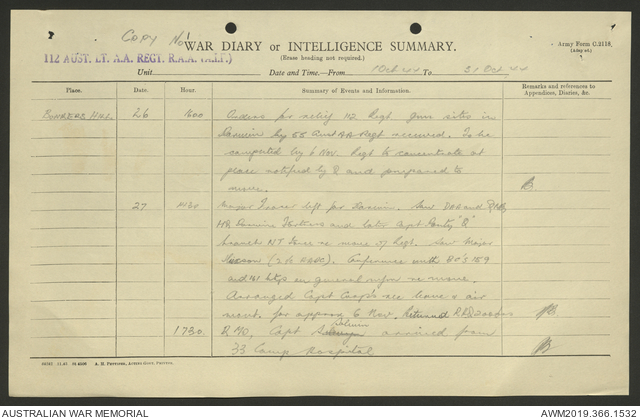 COPY No 1
WAR DIARY or INTELLIGENCE SUMMARY.
(Erase heading not required.)
Army Form C.2118.
112 AUST. LT. A.A. REGT. R.A.A. (A.I.F.)
Unit Date and Time.—From 1 Oct 44 To 31 Oct 44
Place. Date. Hour. Summary of Events and Information. Remarks and references to Appendices, Diaries, &c.
26 1600 Orders for relief 112 Regt gun sites in
Darwin by 55 Aust AA Regt received. To be
completed by 6 Nov. Regt to concentrate at
place notified by Q and prepared to
move.
27 Major left for Darwin. Saw
HQ Darwin Fortress and later Capt "Q"
branch NT Force re move of Regt. Saw Major
(2 ic AASC). Conference with BC's 159
and 161 btys on general re move.
Arranged Capt Coop's rec leave & air
for approx 6 Nov. Returned
1730. RMO, Capt arrived from
33 Camp Hospital
AUSTRALIAN WAR MEMORIAL
AWM2019.366.1532